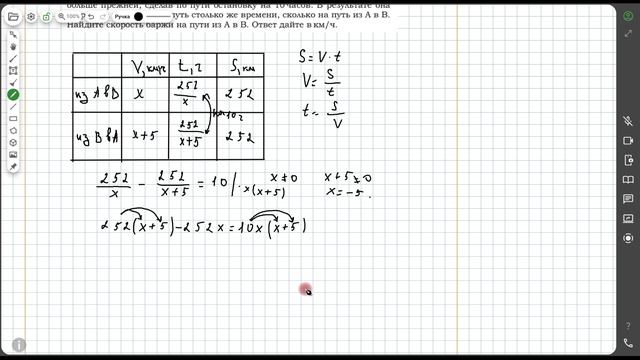 больше прежней, сделав по пути остановку на 10 часов. В результате она
путь столько же времени, сколько на путь из А в В.
Найдите скорость баржи на пути из А в В. Ответ дайте в км/ч.
120%
Ручка
V, км/ч t, ч S, км
из А в В x 252/x 252
на 10 ч
из В в А x+5 252/x+5 252
S = V · t
V = S/t
t = S/V
252/x − 252/x+5 = 10 | · x(x+5) x ≠ 0 x+5 ≠ 0
x = −5.
252(x+5) − 252x = 10x(x+5)